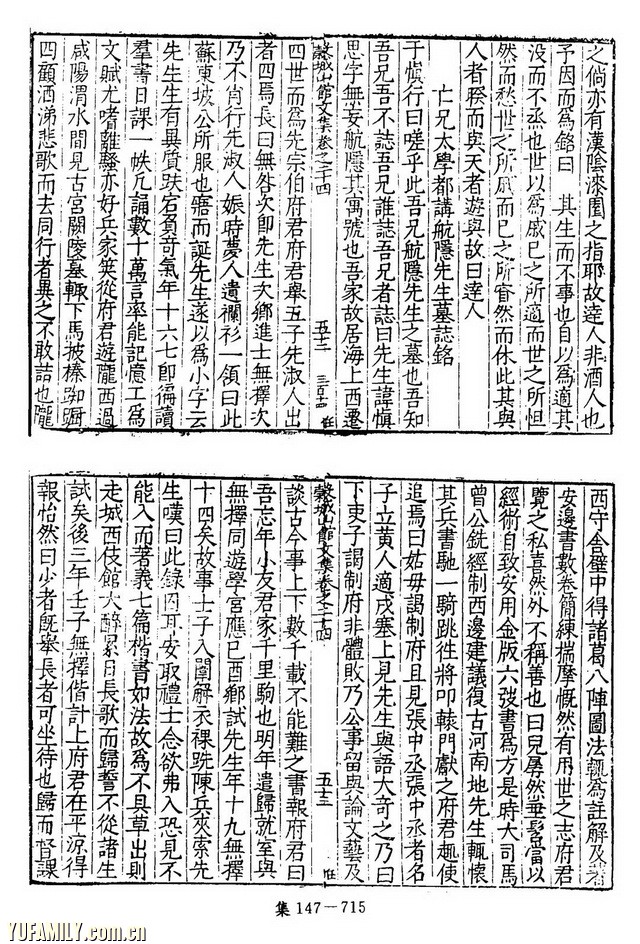 之倘亦有漢陰漆園之指耶故達人非酒人也
予因而為銘曰　其生而不事也自以為適其
没而不烝也世以為戚已之所適而世之所怛
然而愁世之所戚而已之所窅然而休此其與
人者睽而與天者遊與故曰達人
亡兄太學都講航隱先生墓誌銘
于慎行曰嗟乎此吾兄航隱先生之墓也吾知
吾兄吾不誌吾兄誰誌吾兄者誌曰先生諱慎
思字無妄航隱其寓號也吾家故居海上西遷
穀城山館文集卷之二十四　五十三
四世而為先宗伯府君府君舉五子先淑人出
者四焉長曰無咎次即先生次鄉進士無擇次
乃不肖行先淑人娠時夢人遺襴衫一領曰此
蘇東坡公所服也寤而誕先生遂以為小字云
先生生有異質跌宕負奇氣年十六七即徧讀
羣書日課一帙凡誦數十萬言率能記憶工為
文賦尤嗜離騷亦好兵家筴從府君遊隴西過
咸陽渭水間見古宮闕陵墓輒下馬披榛踟蹰
四顧洒涕悲歌而去同行者異之不敢詰也隴
西守舍壁中得諸葛八陣圖法輒為註解及著
安邊書數卷簡練揣摩慨然有用世之志府君
覽之私喜然外不稱善也曰兒孱然垂髫當以
經術自致安用金版六弢書為方是時大司馬
曾公銑經制西邊建議復古河南地先生輒懷
其兵書馳一騎跳往將叩轅門獻之府君趣使
追焉曰姑毋謁制府且見張中丞張中丞者名
子立黃人適戍塞上見先生與語大奇之乃曰
下吏子謁制府非體敗乃公事留與論文藝及
穀城山館文集卷之二十四　五十三
談古今事上下數千載不能難之書報府君曰
吾忘年小友君家千里駒也明年遣歸就室與
無擇同遊學宮應己酉鄉試先生年十九無擇
十四矣故事士子入闈解衣裸跣陳兵夾索先
生嘆曰此録囚耳安取禮士念欲弗入恐見不
能入而著義七篇楷書如法故為不具草出則
走城西伎館大醉累日長歌而歸誓不從諸生
試矣後三年壬子無擇偕計上府君在平涼得
報怡然曰少者既舉長者可坐待也歸而督課
集 147—715
YUFAMILY.com.cn